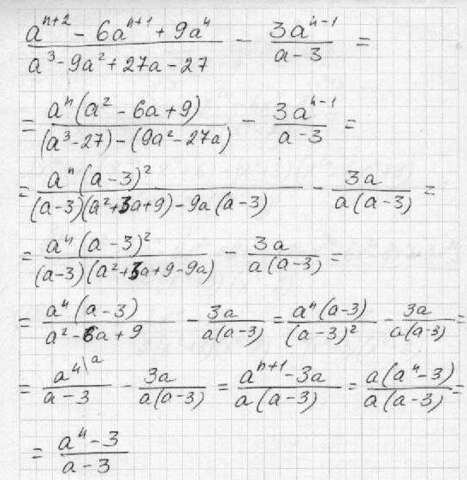 (a^{n+2} - 6a^{n+1} + 9a^n)/(a^3 - 9a^2 + 27a - 27) - (3a^{n-1})/(a - 3) =
= (a^n(a^2 - 6a + 9))/((a^3 - 27) - (9a^2 - 27a)) - (3a^{n-1})/(a - 3) =
= (a^n(a - 3)^2)/((a - 3)(a^2 + 3a + 9) - 9a(a - 3)) - (3a)/(a(a - 3)) =
= (a^n(a - 3)^2)/((a - 3)(a^2 + 3a + 9 - 9a)) - (3a)/(a(a - 3)) =
= (a^n(a - 3))/(a^2 - 6a + 9) - (3a)/(a(a - 3)) = (a^n(a - 3))/((a - 3)^2) - (3a)/(a(a - 3)) =
= (a^n\a)/(a - 3) - (3a)/(a(a - 3)) = (a^{n+1} - 3a)/(a(a - 3)) = (a(a^n - 3))/(a(a - 3)) =
= (a^n - 3)/(a - 3)